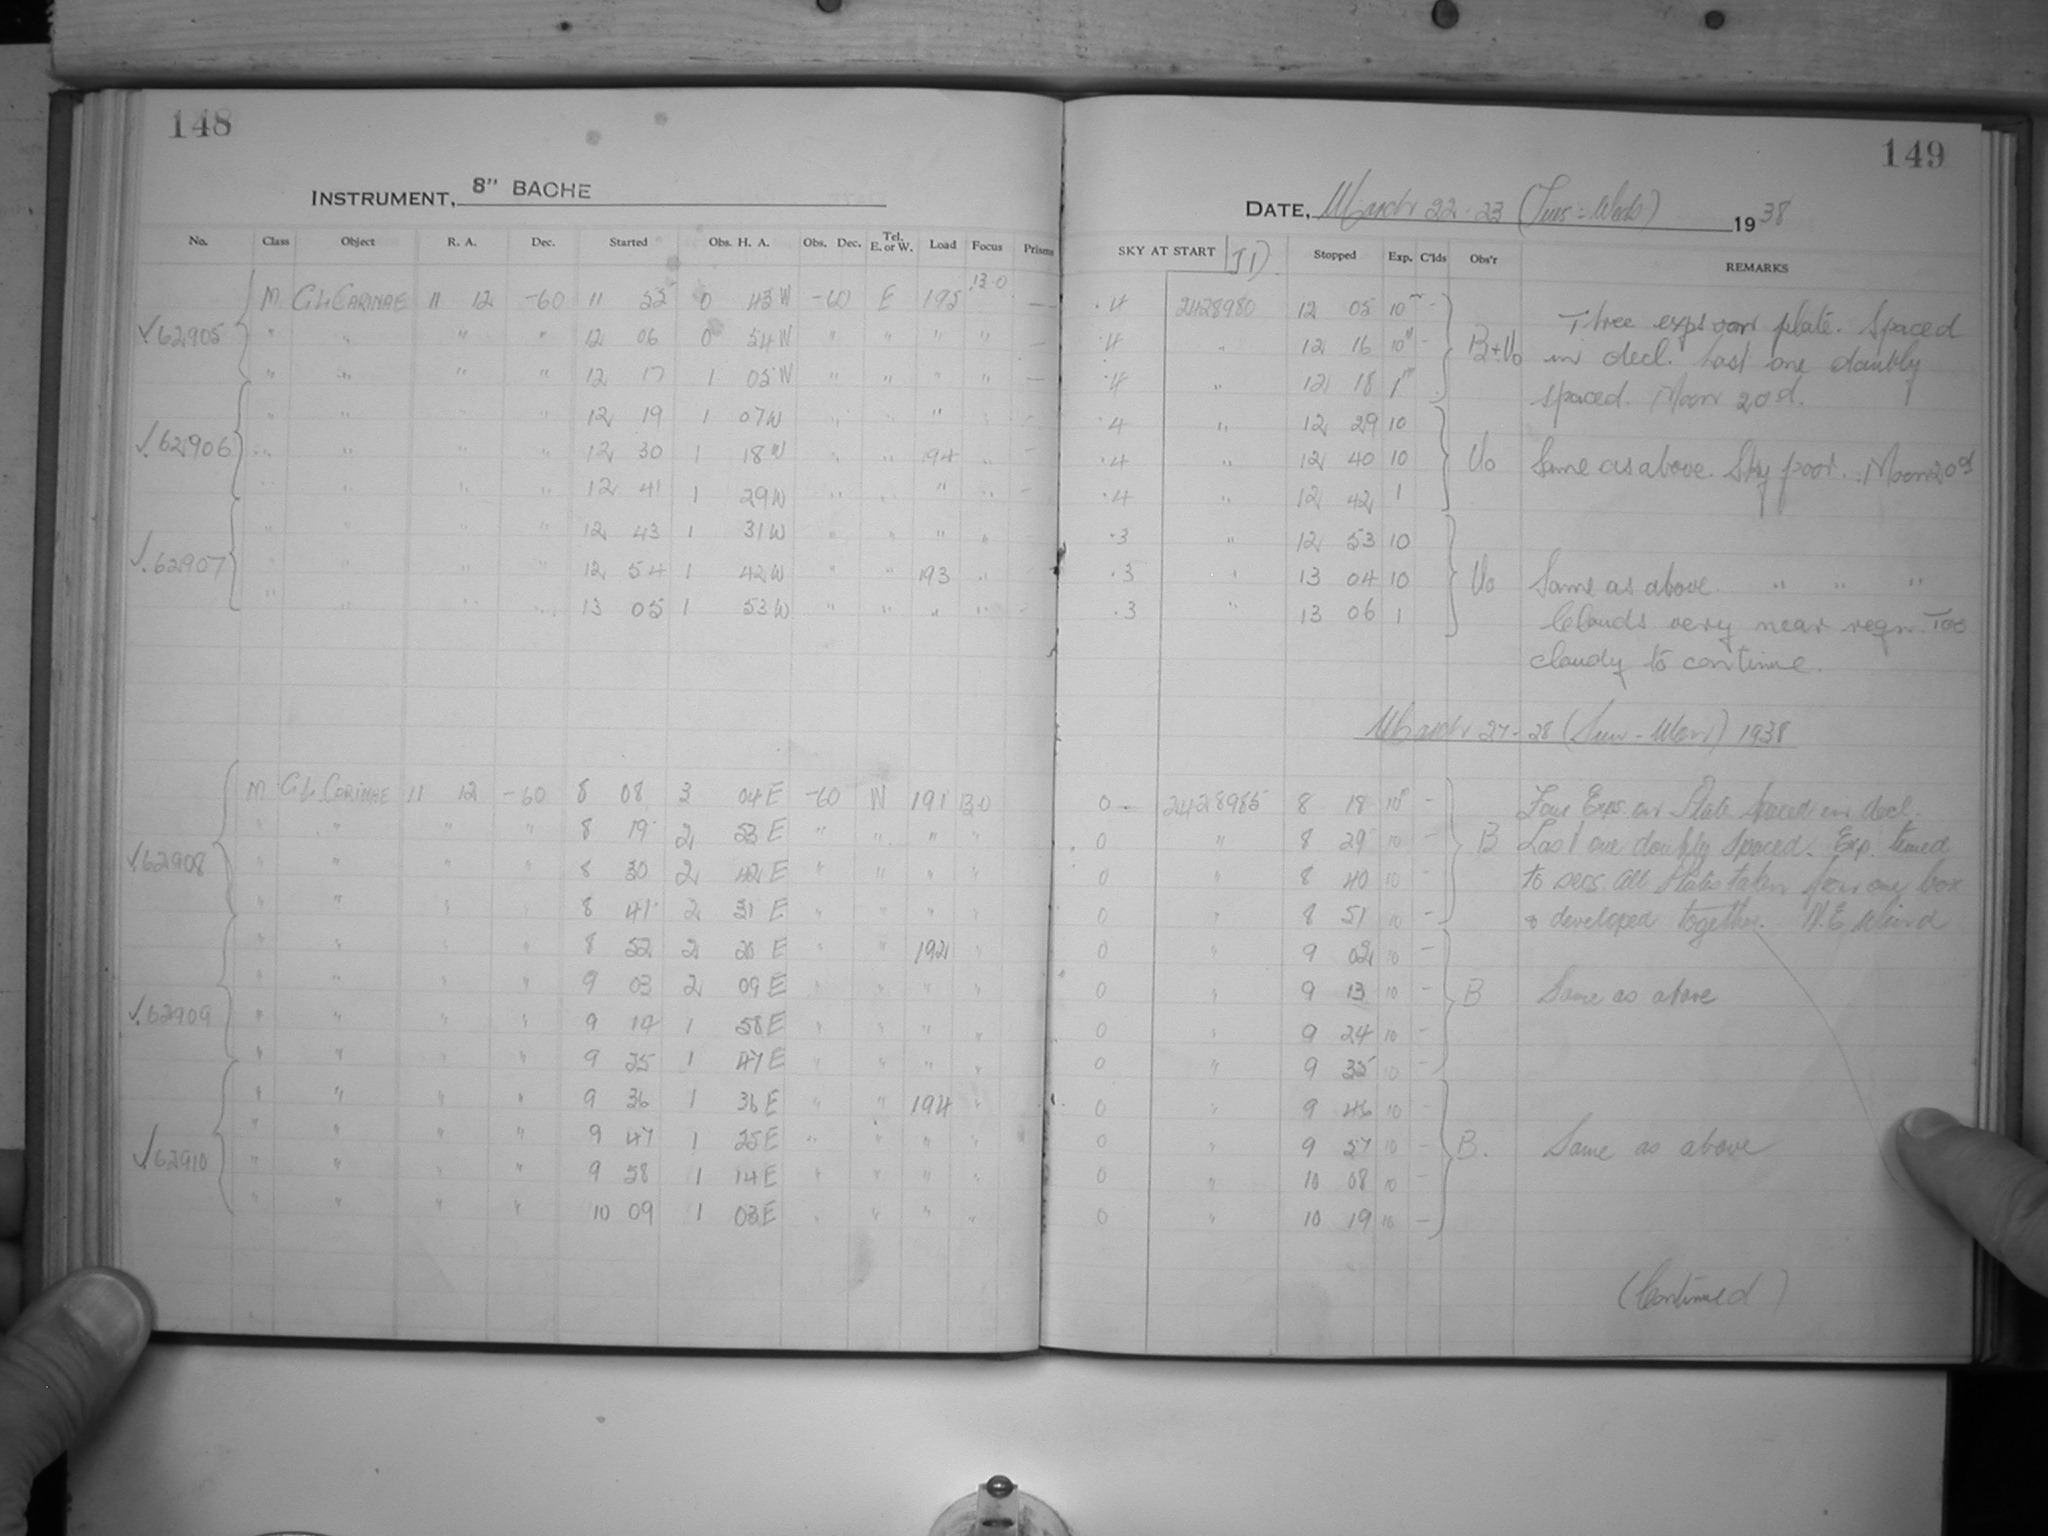 148
149
INSTRUMENT, 8" BACHE
DATE, March 22-23 (Tues-Weds) 1938
No. Class Object R. A. Dec. Started Obs. H. A. Obs. Dec. Tel. E. or W. Load Focus Prisms SKY AT START JD Stopped Exp. C'lds Obs'r REMARKS
M GL CARINAE 11 12 -60 11 55 0 43 W -60 E 195 13.0 — .4 2428980 12 05 10m - Three exps on plate. Spaced
√62905 " " " " 12 06 0 54 W " " " " — .4 " 12 16 10m - B+Uo in decl. Last one doubly
" " " " 12 17 1 05 W " " " " — .4 " 12 18 1m spaced. Moon 20d.
" " " " 12 19 1 07 W " " " " - .4 " 12 29 10
√.62906 " " " " 12 30 1 18 W " " 194 " - .4 " 12 40 10 Uo Same as above. Sky poor. Moon 20d
" " " " 12 41 1 29 W " " " " - .4 " 12 42 1
" " " " 12 43 1 31 W " " " " - .3 " 12 53 10
√.62907 " " " " 12 54 1 42 W " " 193 " - .3 " 13 04 10 Uo Same as above. " " "
" " " " 13 05 1 53 W " " " " - .3 " 13 06 1 Clouds very near regn. Too
cloudy to continue.
March 27-28 (Sun-Mon) 1938
M GL CARINAE 11 12 -60 8 08 3 04 E -60 W 191 13.0 0 - 2428985 8 18 10m - Four Exps. on Plate Spaced in decl.
" " " " 8 19 2 53 E " " " " 0 " 8 29 10 - B Last one doubly spaced. Exp. timed
√62908 " " " " 8 30 2 42 E " " " " 0 " 8 40 10 - to secs. All Plates taken from one box
" " " " 8 41 2 31 E " " " " 0 " 8 51 10 - & developed together. N.E. Wind
" " " " 8 52 2 20 E " " 192 " 0 " 9 02 10 -
" " " " 9 03 2 09 E " " " " 0 " 9 13 10 - B Same as above
√.62909 " " " " 9 14 1 58 E " " " " 0 " 9 24 10 -
" " " " 9 25 1 47 E " " " " 0 " 9 35 10 -
" " " " 9 36 1 36 E " " 194 " 0 " 9 46 10 -
" " " " 9 47 1 25 E " " " " 0 " 9 57 10 - B. Same as above
√62910 " " " " 9 58 1 14 E " " " " 0 " 10 08 10 -
" " " " 10 09 1 03 E " " " " 0 " 10 19 10 -
(Continued)